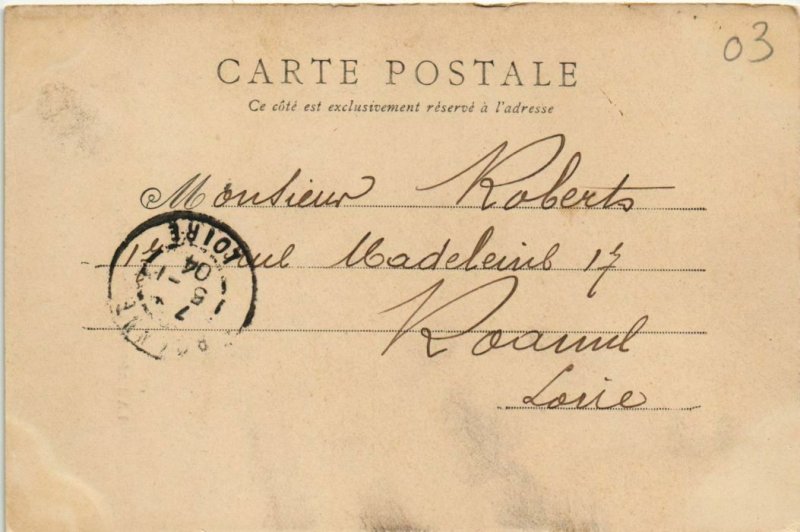 03
CARTE POSTALE
Ce côté est exclusivement réservé à l'adresse
Monsieur Roberts
17 rue Madeleine 17
Roanne
Loire
ROANNE LOIRE
04